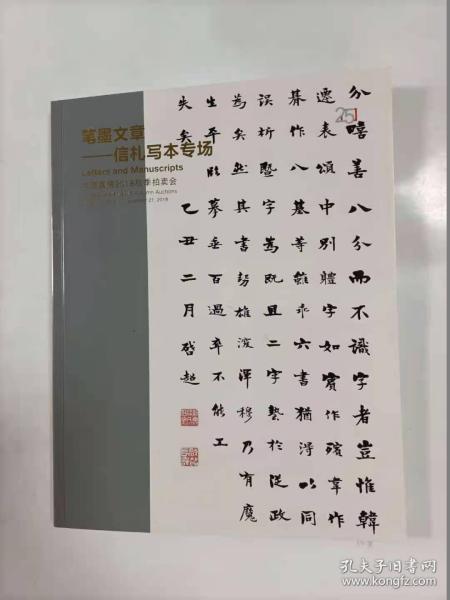 笔墨文章
——信札写本专场
Letters and Manuscripts
2018秋季拍卖会
Autumn Auctions
21, 2018
25
分嘻善八分而不識字者豈惟韓
遷表頌中別體字如賓作殯韋作
作八基等雖六書猶得以同
誤析暨字為既且二字勢於從政
為矣然其書勢雄渾穆乃有魔
生平臨摹垂百過卒不能工
失矣
乙丑二月啓超
孔夫子旧书网
www.kongfz.com